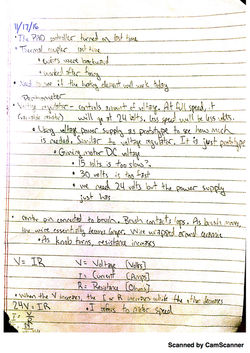 11/17/16
• The PAID controller turned on last time
• Thermal coupler last time
• Colors were backward
• worked after fixing
• Need to see if the heating element will work today
Potentiometer
• Voltage regulator - controls amount of voltage. At full speed, it
(variable resistor) will go at 24 volts. less speed will be less volts.
• Using voltage power supply as prototype to see how much
is needed. Similar to voltage regulator. It is just prototype
• Giving motor DC voltage
• 15 volts is too slow?
• 30 volts is too fast
• we need 24 volts but the power supply
just has
• center pin connected to brush. Brush contacts loops. As brush moves,
the wire essentially becomes longer. Wire wrapped around ceramic
• As knob turns, resistance increases
V = IR
V = Voltage [Volts]
I = Current [Amps]
R = Resistance [Ohms]
• When the V increases, the I or R increases while the other decreases
24V = IR
• I refers to motor speed
Scanned by CamScanner